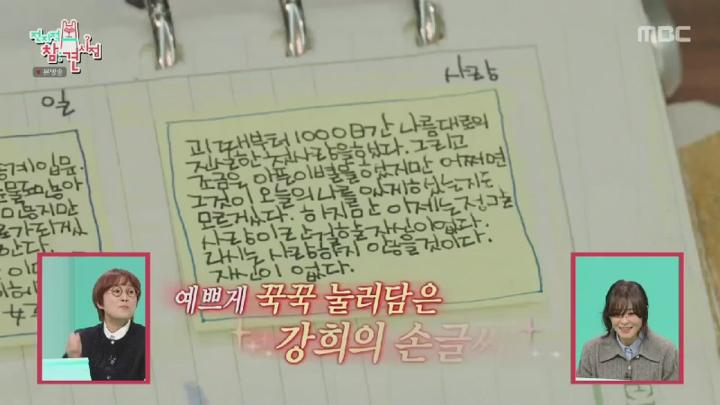 전지적
참견
시점
본방송
MBC
일
사랑
고1때부터 1000日간 나름대로의
진실한 첫사랑을 했었다. 그리고
조금은 아픈 이별을 했지만 어쩌면
그것이 오늘의 나를 있게 하였는지도
모르겠다. 하지만 이제는 정말
사랑이란걸 할 자신이 없다.
다시는 사랑하지 않을것이다.
자신이 없다.
예쁘게 꾹꾹 눌러담은
강희의 손글씨